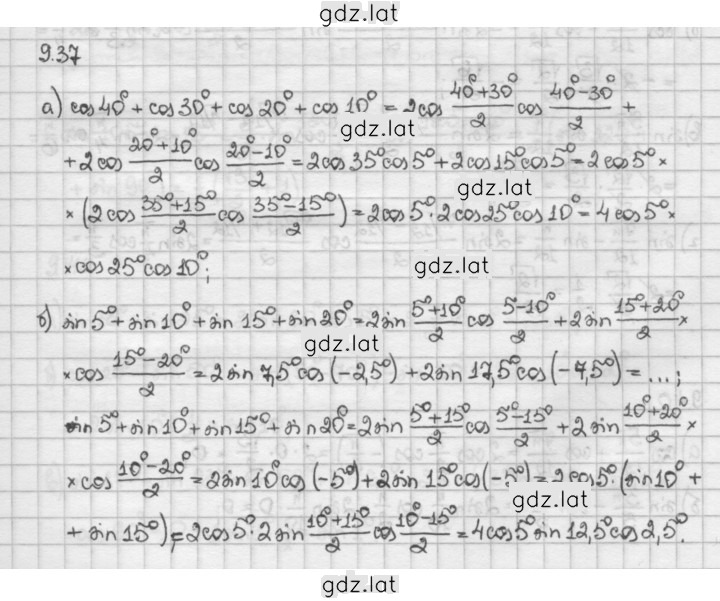 gdz.lat
9.37
а) cos 40° + cos 30° + cos 20° + cos 10° = 2cos (40°+30°)/2 cos (40°-30°)/2 +
gdz.lat
+ 2cos (20°+10°)/2 cos (20°-10°)/2 = 2cos 35° cos 5° + 2cos 15° cos 5° = 2cos 5° ×
gdz.lat
× (2cos (35°+15°)/2 cos (35°-15°)/2) = 2cos 5° · 2cos 25° cos 10° = 4cos 5° ×
× cos 25° cos 10°;
gdz.lat
б) sin 5° + sin 10° + sin 15° + sin 20° = 2sin (5°+10°)/2 cos (5-10°)/2 + 2sin (15°+20°)/2 ×
gdz.lat
× cos (15°-20°)/2 = 2sin 7,5° cos (-2,5°) + 2sin 17,5° cos (-7,5°) = ...;
sin 5° + sin 10° + sin 15° + sin 20° = 2sin (5°+15°)/2 cos (5°-15°)/2 + 2sin (10°+20°)/2 ×
× cos (10°-20°)/2 = 2sin 10° cos (-5°) + 2sin 15° cos (-5°) = 2cos 5° · (sin 10° +
gdz.lat
+ sin 15°) = 2cos 5° · 2sin (10°+15°)/2 cos (10°-15°)/2 = 4cos 5° sin 12,5° cos 2,5°.
gdz.lat